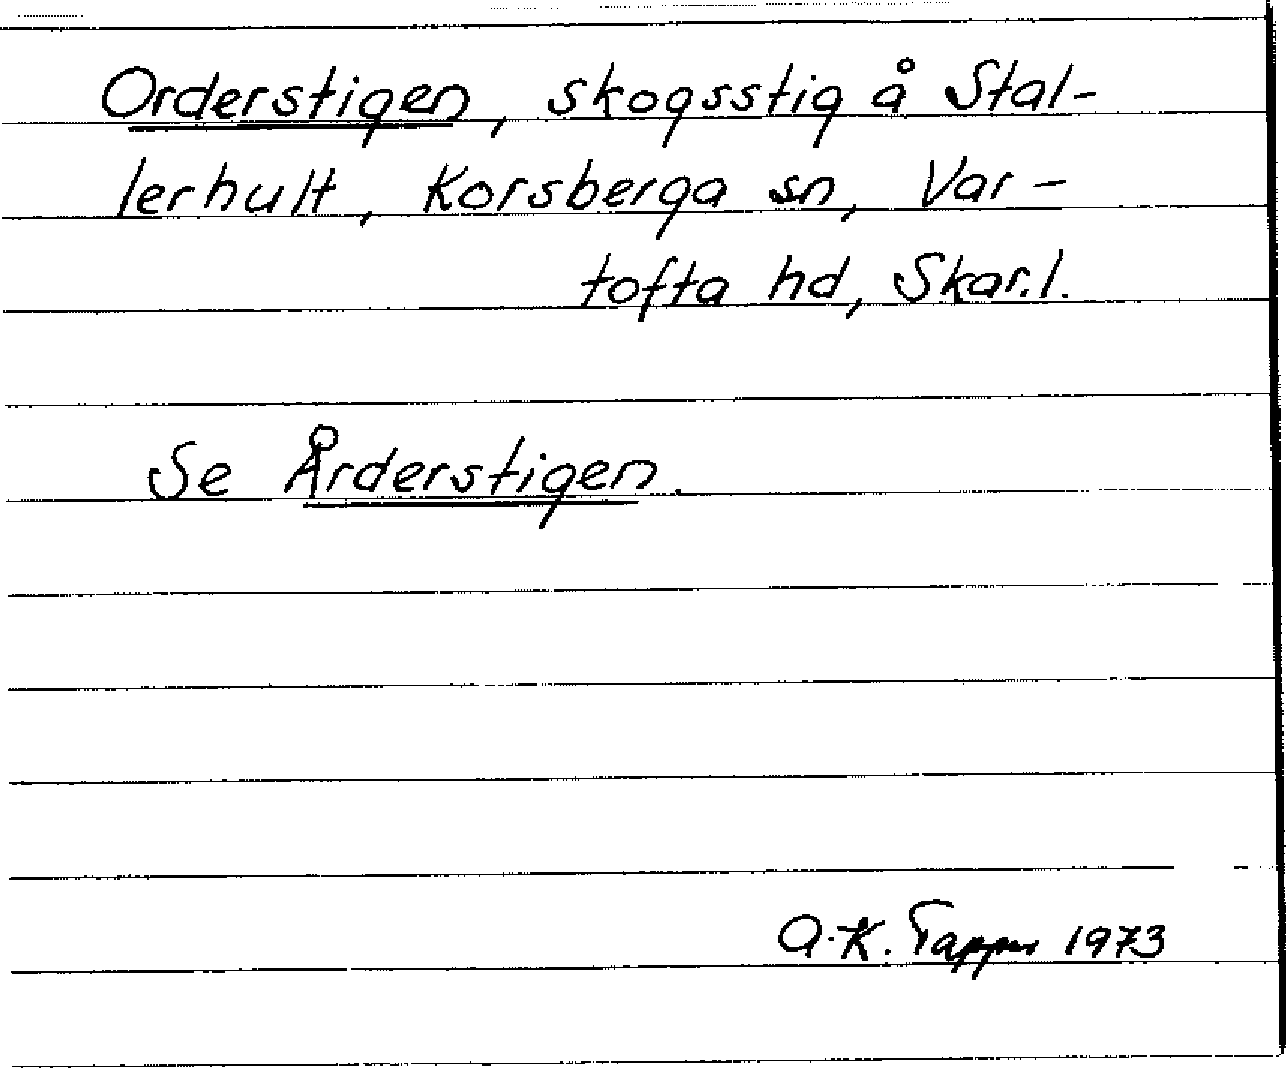 Orderstigen, skogsstig å Stal-
lerhult, Korsberga sn, Var-
tofta hd, Skar.l.
Se Årderstigen.
A-K. 1973